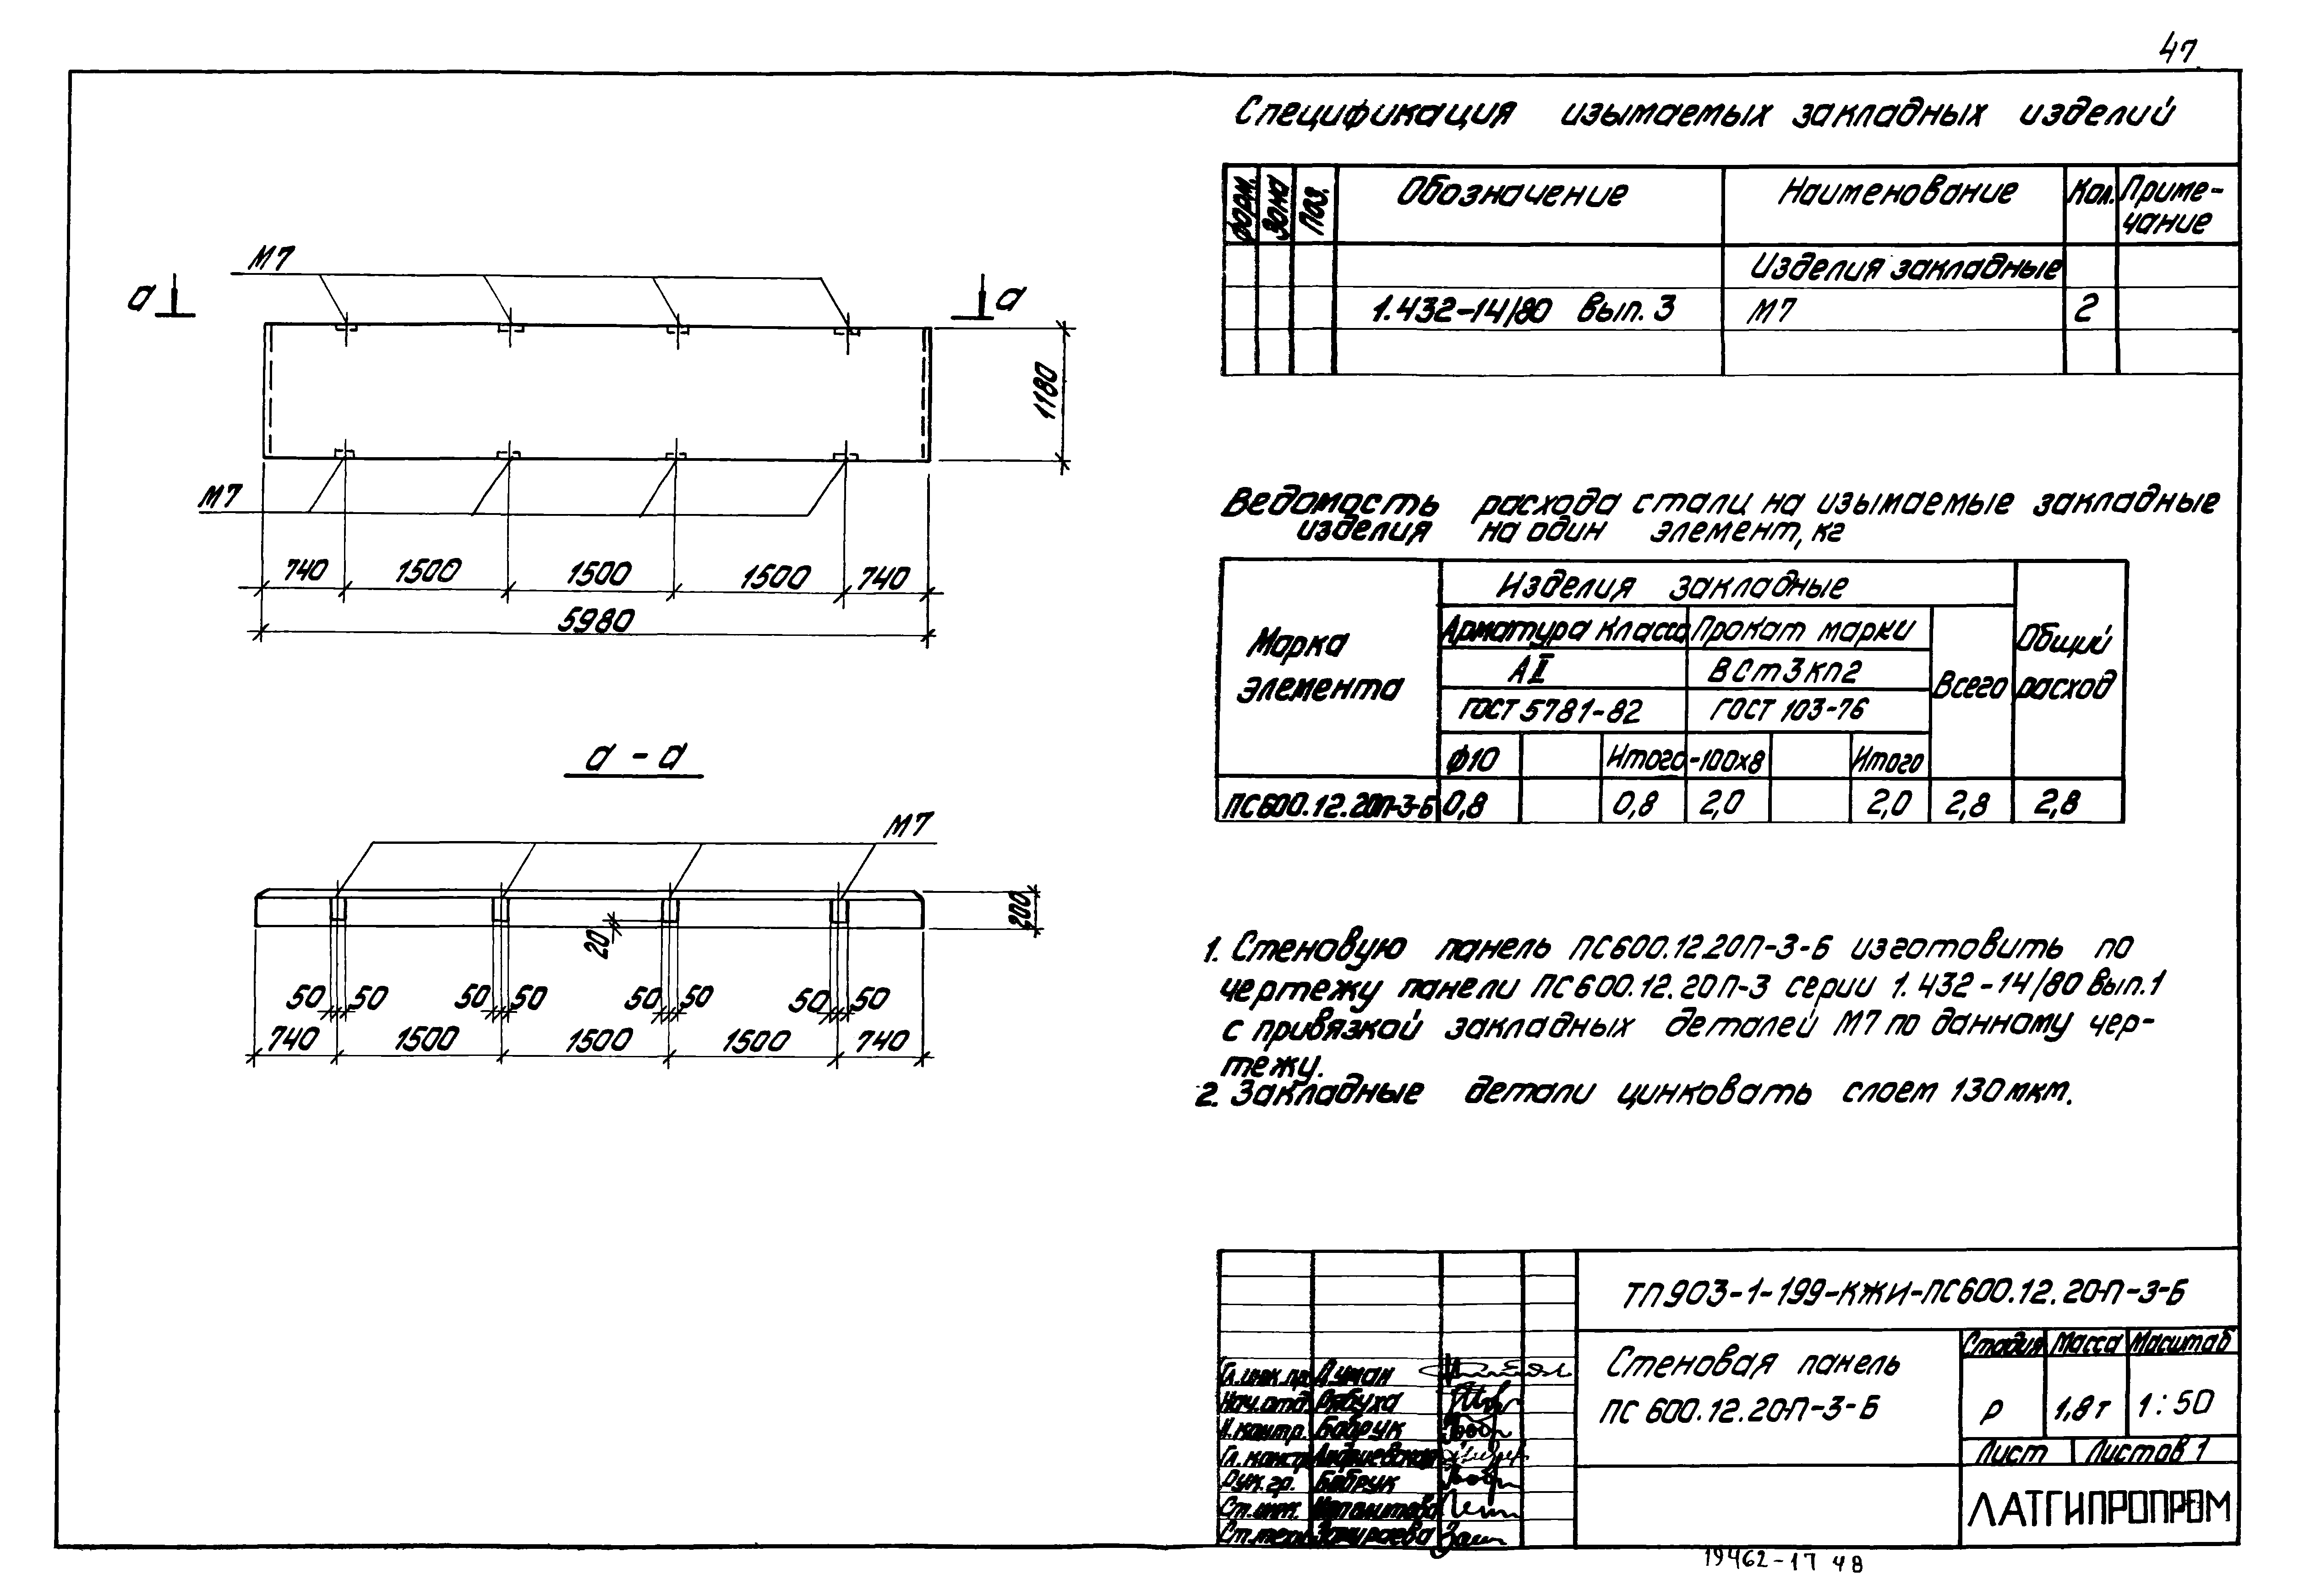 47
Спецификация изымаемых закладных изделий
Форм. Зона Поз. Обозначение Наименование Кол. Приме-
чание
Изделия закладные
1.432-14/80 Вып. 3 М7 2
М7
а а
1180
М7
740 1500 1500 1500 740
5980
Ведомость расхода стали на изымаемые закладные
изделия на один элемент, кг
Марка
элемента
Изделия закладные
Арматура класса Прокат марки
АII ВСт3кп2
Всего
Общий
расход
ГОСТ 5781-82 ГОСТ 103-76
ф10 Итого -100х8 Итого
ПС600.12.20П-3-Б 0,8 0,8 2,0 2,0 2,8 2,8
а - а
М7
200
20
50 50 50 50 50 50 50 50
740 1500 1500 1500 740
1. Стеновую панель ПС600.12.20П-3-Б изготовить по
чертежу панели ПС600.12.20П-3 серии 1.432-14/80 Вып.1
с привязкой закладных деталей М7 по данному чер-
тежу.
2. Закладные детали цинковать слоем 130 мкм.
ТП903-1-199-КЖИ-ПС600.12.20-П-3-Б
Стеновая панель
ПС 600.12.20-П-3-Б
Стадия Масса Масштаб
Р 1,8т 1:50
Лист Листов 1
ЛАТГИПРОПРОМ
Гл.инж.пр.
Нач.отд. Рябуха
Н.контр. Бобрук
Гл.констр.
Рук.гр. Бобрук
Ст.инж.
Ст.техн.
19462-17 48